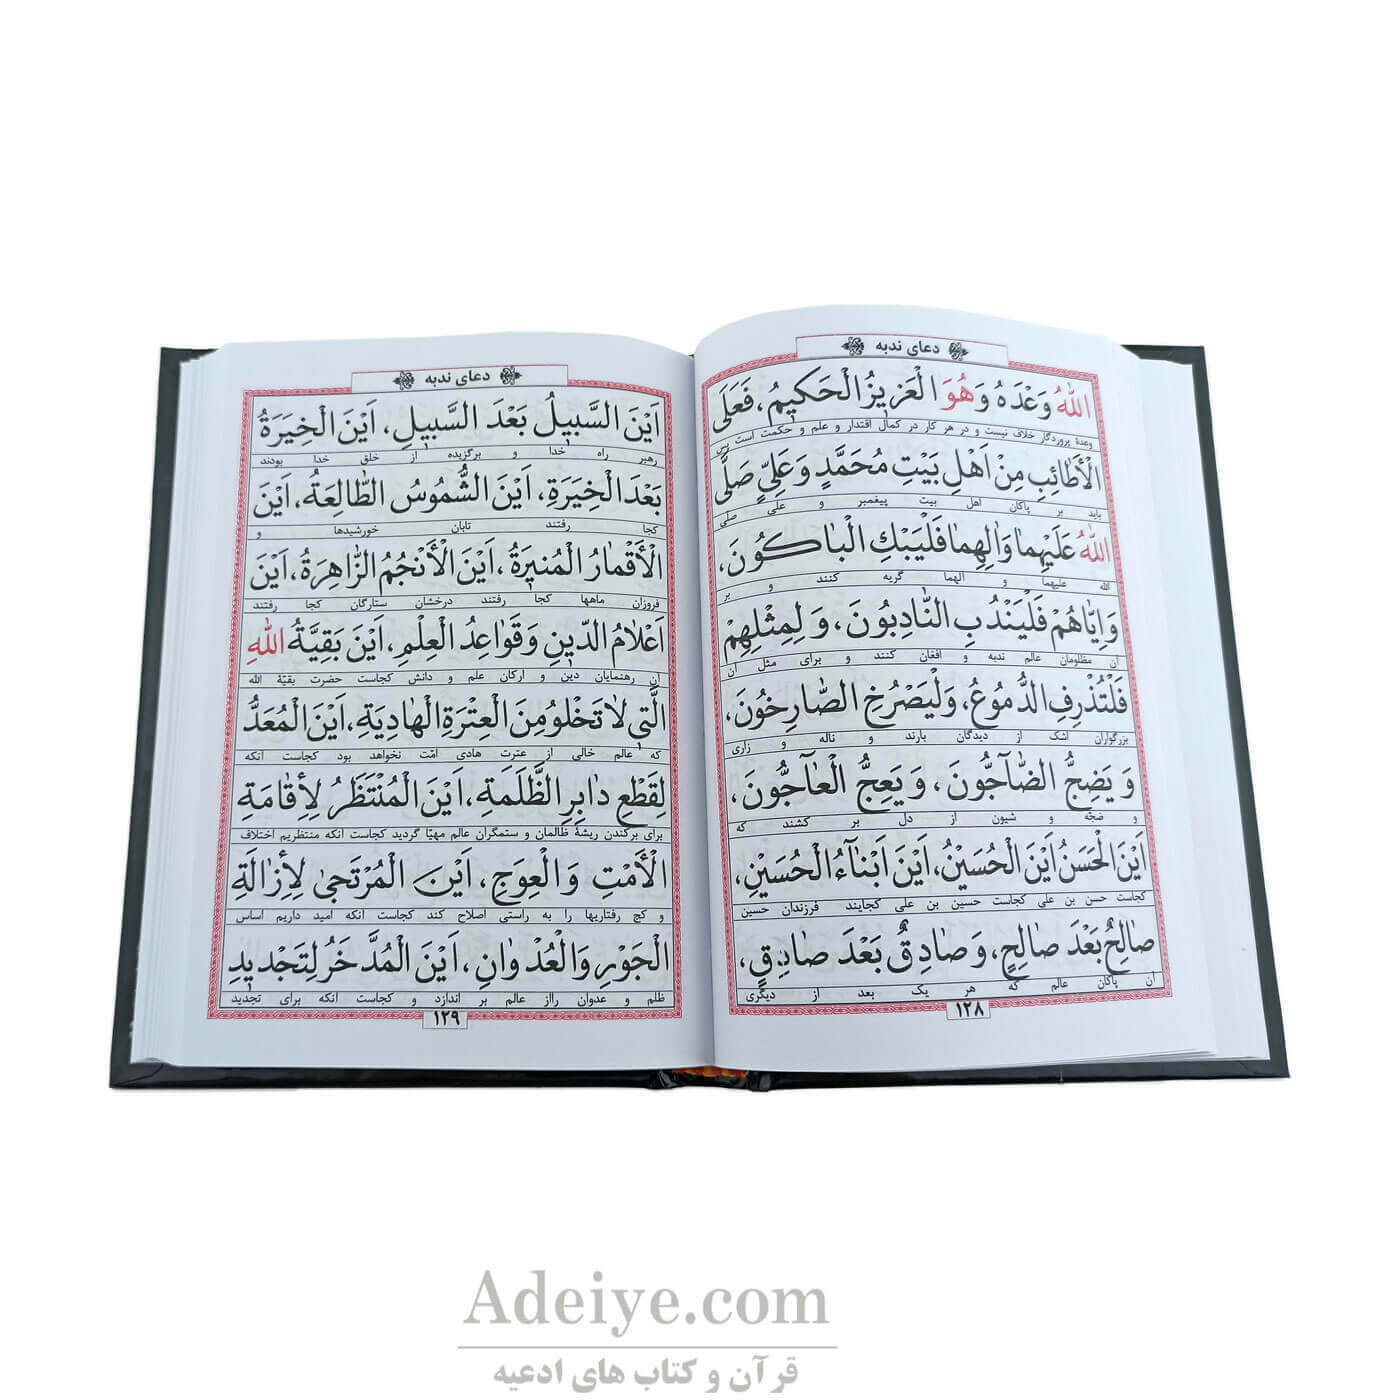 دعای ندبه
اللّٰهُ وَعْدَهُ وَهُوَ الْعَزیزُ الْحَکیمُ، فَعَلَی
وعدهٔ پروردگار خلاف نیست و در هر کار در کمال اقتدار و علم و حکمت است پس
الْأَطائِبِ مِنْ اَهْلِ بَیْتِ مُحَمَّدٍ وَعَلِیٍّ صَلَّی
باید بر پاکان اهل بیت پیغمبر و علی صلی
اللّٰهُ عَلَیْهِما وَالِهِما فَلْیَبْكِ الْباکُونَ،
الله علیهما و الهما گریه کنند و بر
وَاِیّاهُمْ فَلْیَنْدُبِ النّادِبُونَ، وَلِمِثْلِهِمْ
آن مظلومان عالم ندبه و افغان کنند و برای مثل آن
فَلْتُذْرَفِ الدُّمُوعُ، وَلْیَصْرُخِ الصّارِخُونَ،
بزرگواران اشک از دیدگان بارند و ناله و زاری
وَیَضِجُّ الضّآجُّونَ، وَیَعِجُّ الْعآجُّونَ،
و ضجّه و شیون از دل بر کشند که
اَیْنَ الْحَسَنُ اَیْنَ الْحُسَیْنُ، اَیْنَ اَبْنآءُ الْحُسَیْنِ،
کجاست حسن بن علی کجاست حسین بن علی کجایند فرزندان حسین
صالِحٌ بَعْدَ صالِحٍ، وَصادِقٌ بَعْدَ صادِقٍ،
آن پاکان عالم که هر یک بعد از دیگری
۱۲۸
دعای ندبه
اَیْنَ السَّبیلُ بَعْدَ السَّبیلِ، اَیْنَ الْخِیَرَةُ
رهبر راه خدا و برگزیده از خلق خدا بودند
بَعْدَ الْخِیَرَةِ، اَیْنَ الشُّمُوسُ الطّالِعَةُ، اَیْنَ
کجا رفتند تابان خورشیدها و
الْأَقْمارُ الْمُنیرَةُ، اَیْنَ الْأَنْجُمُ الزّاهِرَةُ، اَیْنَ
فروزان ماهها کجا رفتند درخشان ستارگان کجا رفتند
اَعْلامُ الدّینِ وَقَواعِدُ الْعِلْمِ، اَیْنَ بَقِیَّةُ اللّٰهِ
آن رهنمایان دین و ارکان علم و دانش کجاست حضرت بقیّة الله
الَّتی لاتَخْلُو مِنَ الْعِتْرَةِ الْهادِیَةِ، اَیْنَ الْمُعَدُّ
که عالم خالی از عترت هادی امّت نخواهد بود کجاست آنکه
لِقَطْعِ دابِرِ الظَّلَمَةِ، اَیْنَ الْمُنْتَظَرُ لِأِقامَةِ
برای برکندن ریشهٔ ظالمان و ستمگران عالم مهیّا گردید کجاست آنکه منتظریم اختلاف
الْأَمْتِ وَالْعِوَجِ، اَیْنَ الْمُرْتَجی لِأِزالَةِ
و کج رفتاریها را به راستی اصلاح کند کجاست آنکه امید داریم اساس
الْجَوْرِ وَالْعُدْوانِ، اَیْنَ الْمُدَّخَرُ لِتَجْدیدِ
ظلم و عدوان رااز عالم بر اندازد و کجاست آنکه برای تجدید
۱۲۹
Adeiye.com
قرآن و کتاب های ادعیه